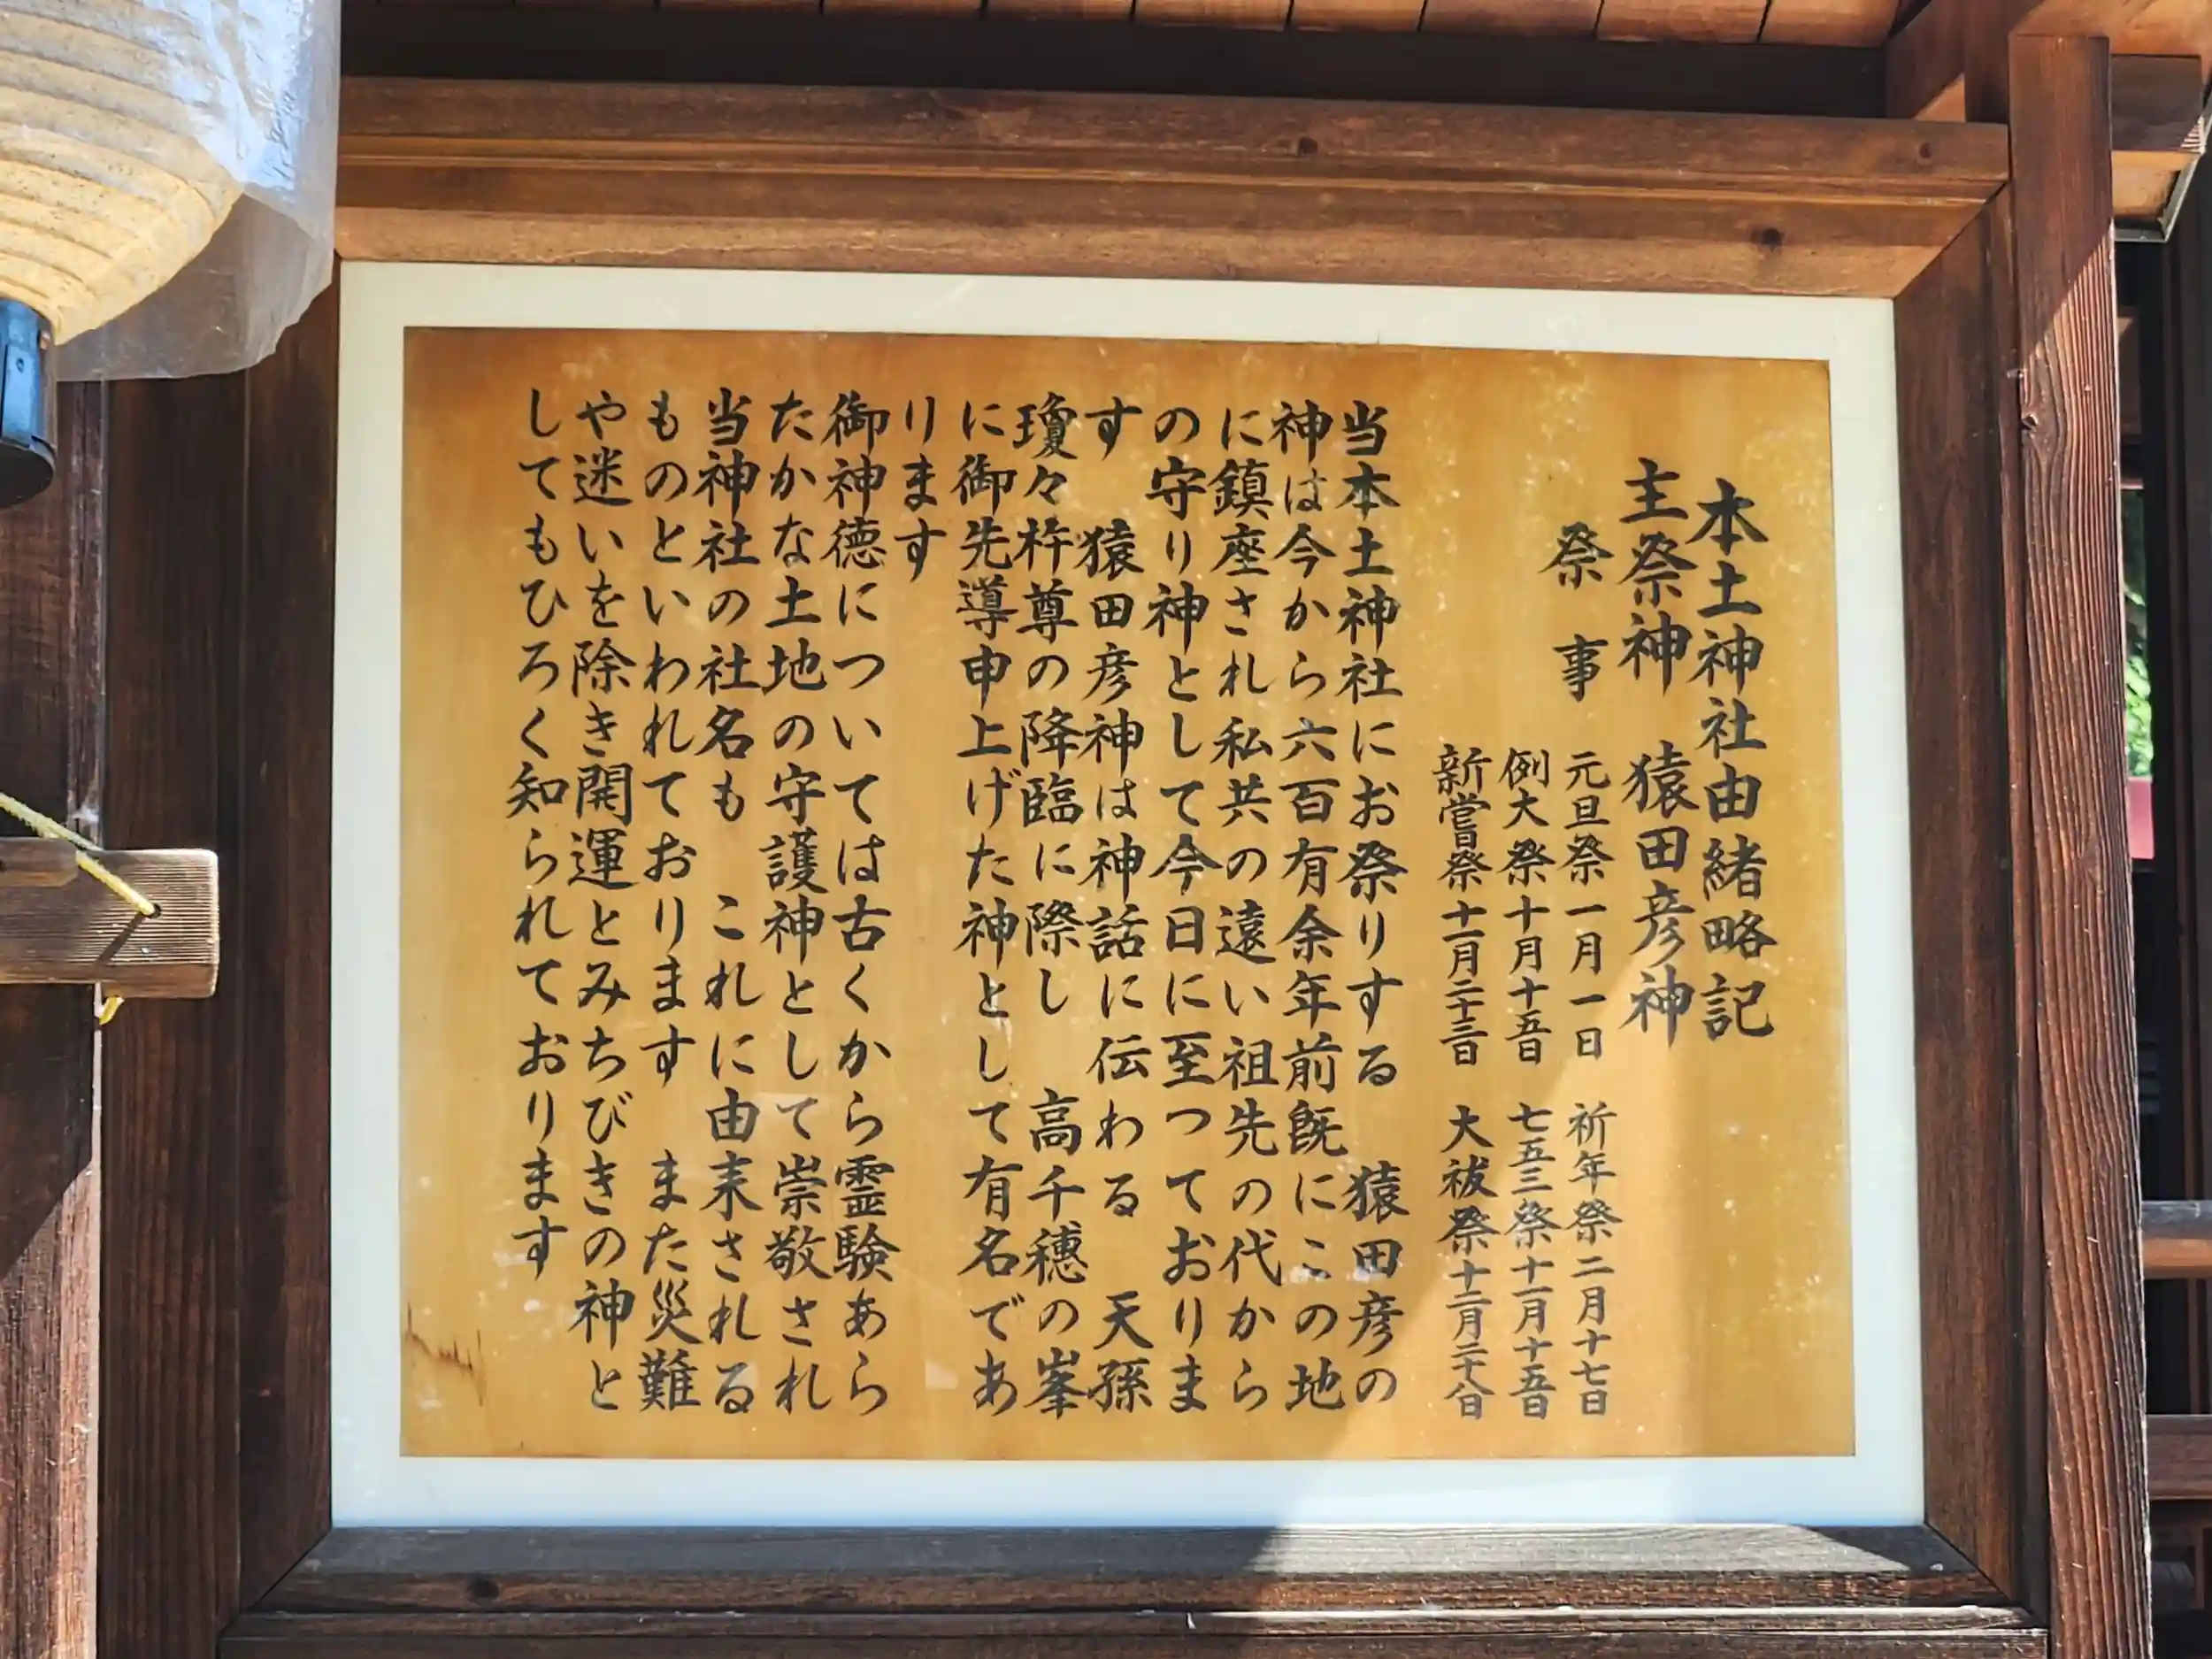 本土神社由緒略記
主祭神　猿田彦神
祭　事
元旦祭 一月一日　祈年祭 二月十七日
例大祭 十月十五日　七五三祭 十一月十五日
新嘗祭 十一月二十三日　大祓祭 十二月二十八日
当本土神社にお祭りする　猿田彦の
神は今から六百有余年前既にこの地
に鎮座され私共の遠い祖先の代から
の守り神として今日に至つておりま
す　猿田彦神は神話に伝わる　天孫
瓊々杵尊の降臨に際し　高千穂の峯
に御先導申上げた神として有名であ
ります
御神徳については古くから霊験あら
たかな土地の守護神として崇敬され
当神社の社名も　これに由来される
ものといわれております　また災難
や迷いを除き開運とみちびきの神と
してもひろく知られております